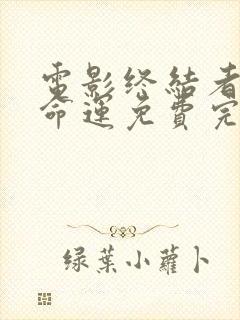 電影终結者
命運免費完
绿葉小蘿卜